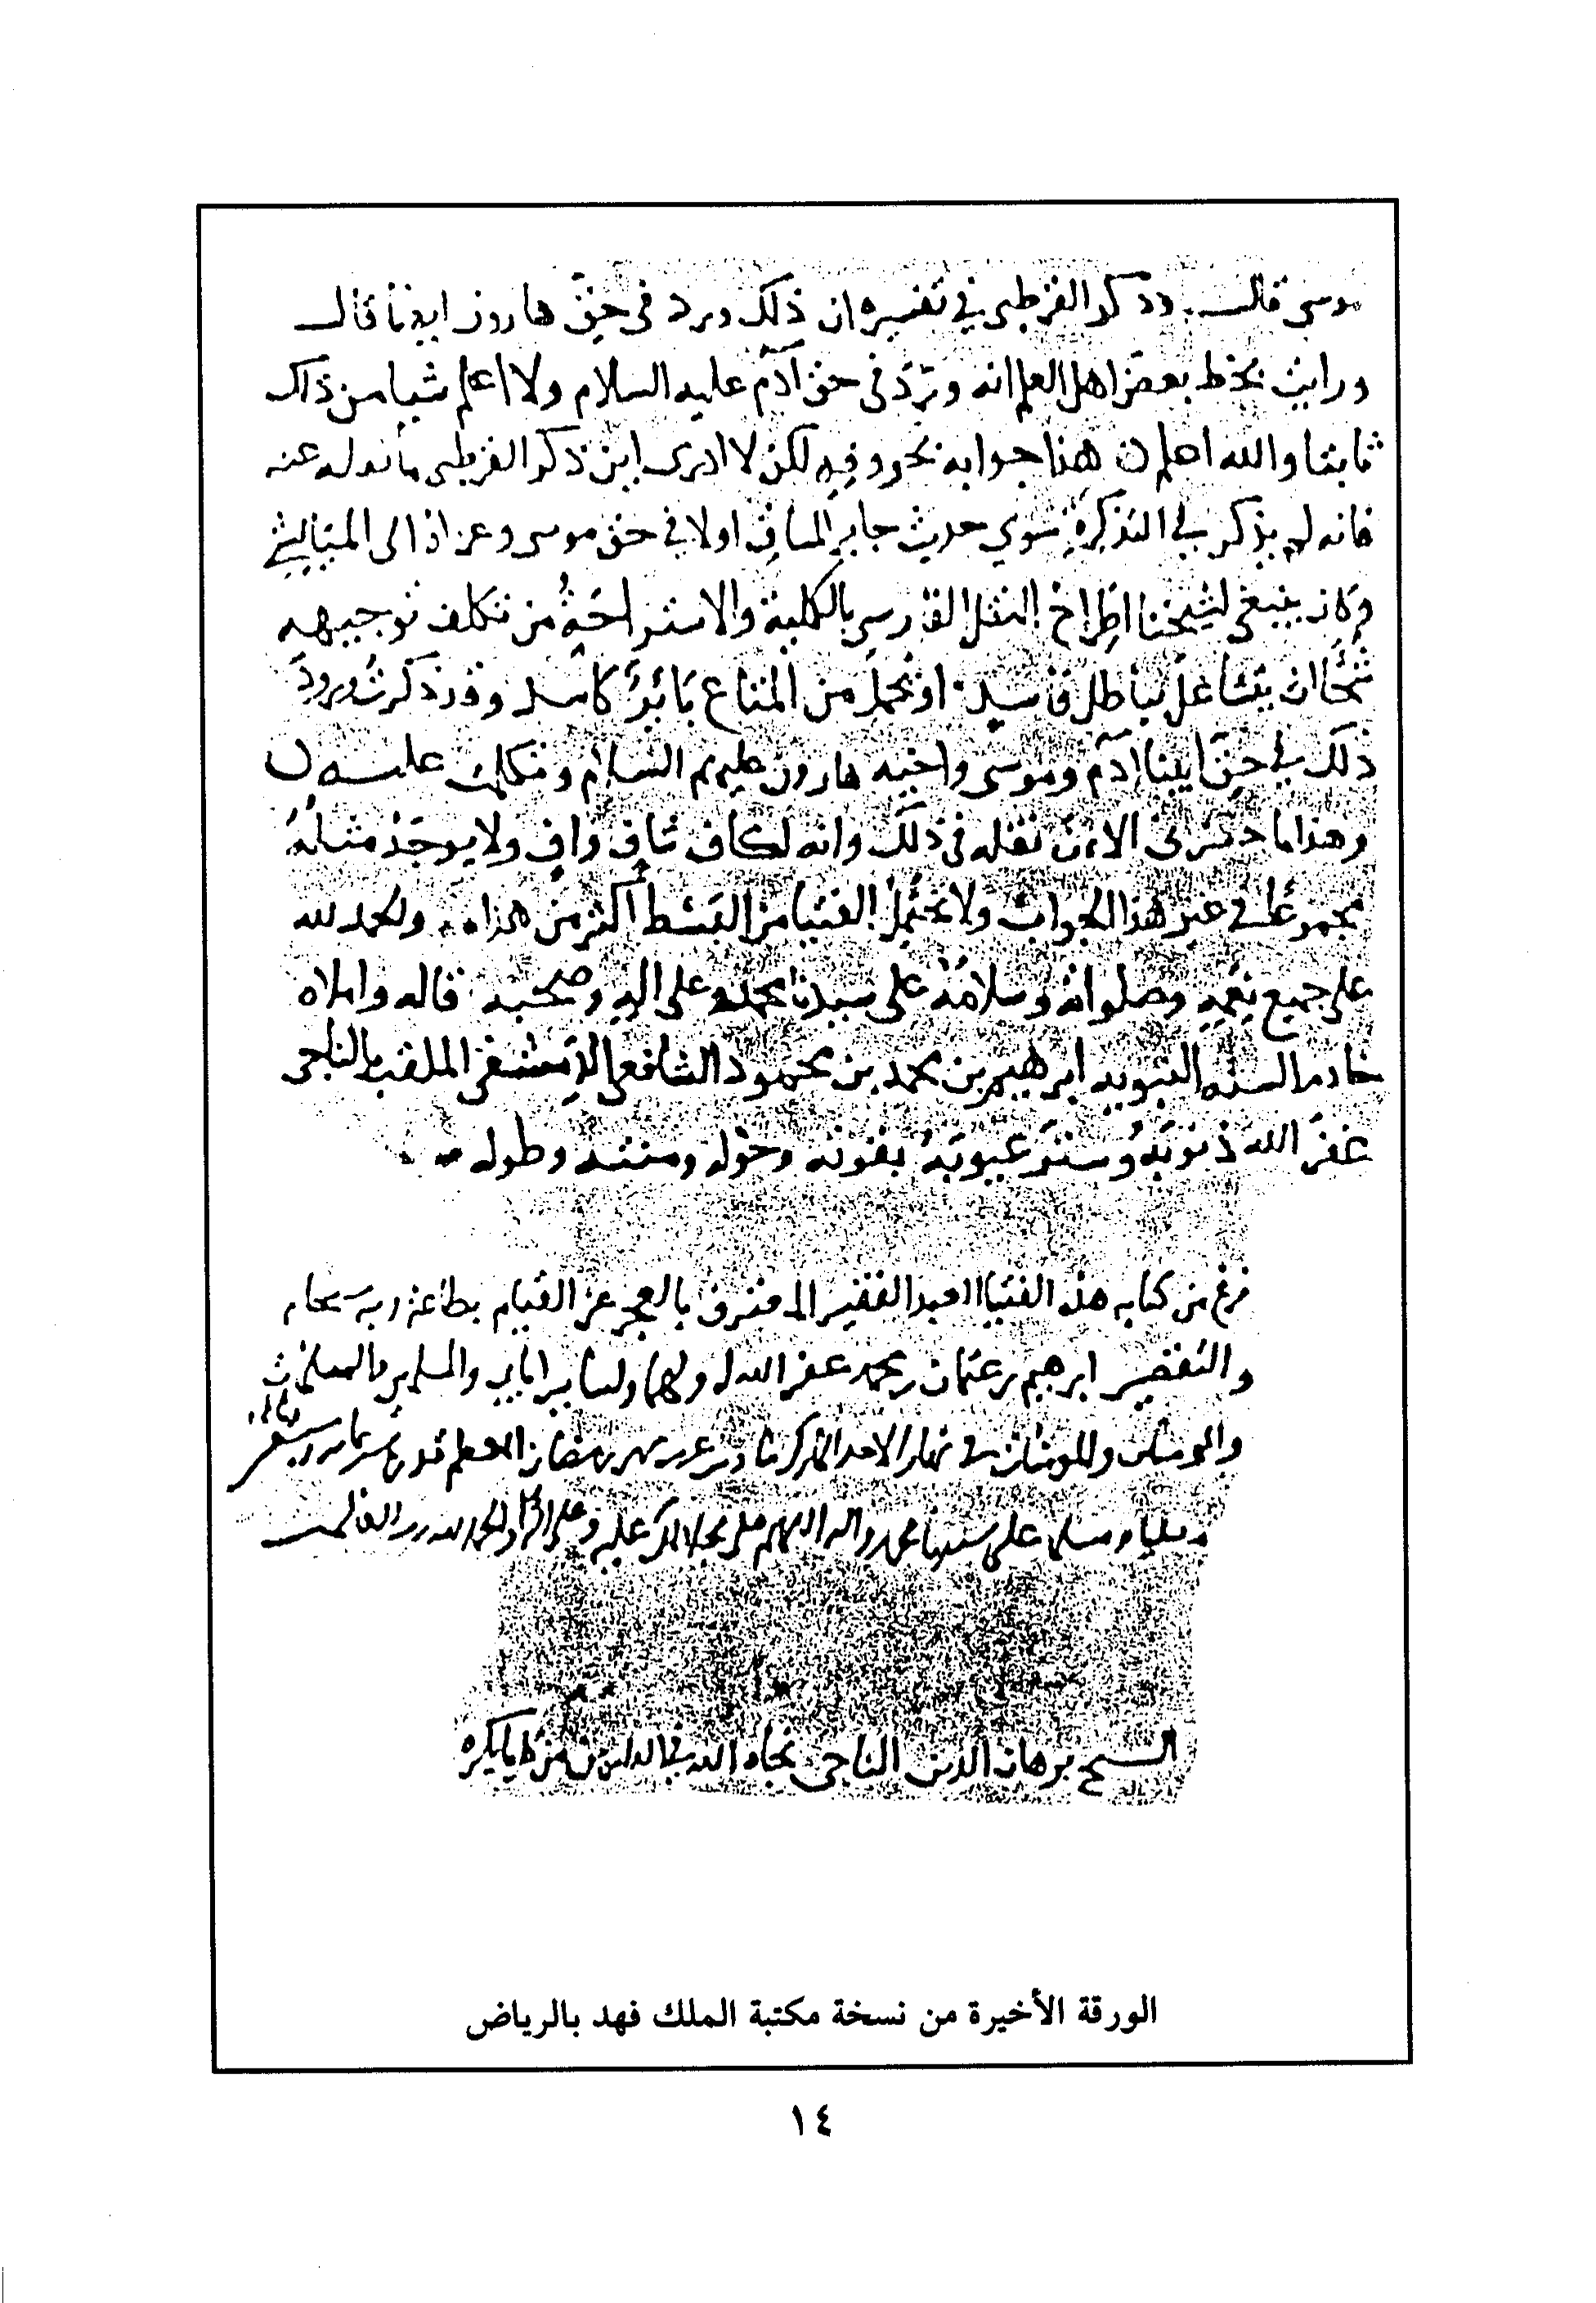 موسى قال وذكر القرطبى في تفسيره ان ذلك ورد فى حق هارون ايضا قال
ورايت بخط بعض اهل العلم انه ورد فى حق آدم عليه السلام ولا اعلم شيا من ذلك
ثابتا والله اعلم هذا جوابه بحروفه لكن لا ادرى اين ذكر القرطبى ما نقله عنه
فانه لم يذكر في التذكرة سوى حديث جابر المساق اولا في حق موسى وعزاه الى الميانشي
وكان ينبغى لشيخنا اطراح النقل بالكلية والاستراحة من تكلف توجيهه
شحا ان يتشاغل بباطل فاسد او يحمل من المتاع بائرا كاسد وقد ذكرت ورود
ذلك في حق ابينا آدم وموسى واخيه هارون عليهم السلام وتكلمت عليه
وهذا ما حضرنى الان نقله فى ذلك وانه لكاف شاف واف ولا يوجد مثله
مجموعا في غير هذا الجواب ولا تحتمل الفتيا من البسط اكثر من هذا والحمد لله
على جميع نعمه وصلواته وسلامه على سيدنا محمد وعلى آله وصحبه قاله واملاه
خادم السنه النبويه ابرهيم بن محمد بن محمود الشافعى الدمشقى الملقب بالناجى
غفر الله ذنوبه وستر عيوبه بقوته وحوله ومنته وطوله
فرغ من كتابه هذه الفتيا العبد الفقير المعترف بالعجز عن القيام بطاعة ربه
والتقصير ابرهيم بن عثمان بن محمد غفر الله له ولهما ولسائر والمسلمين والمسلمات
والمومنين والمومنات في نهار الاحد شهر رمضان المعظم
مصليا ومسلما على سيدنا محمد واله والحمد لله رب العالمين
الشيخ برهان الدين الناجى نجاه الله في الدارين من كل ما يكره
الورقة الأخيرة من نسخة مكتبة الملك فهد بالرياض
١٤